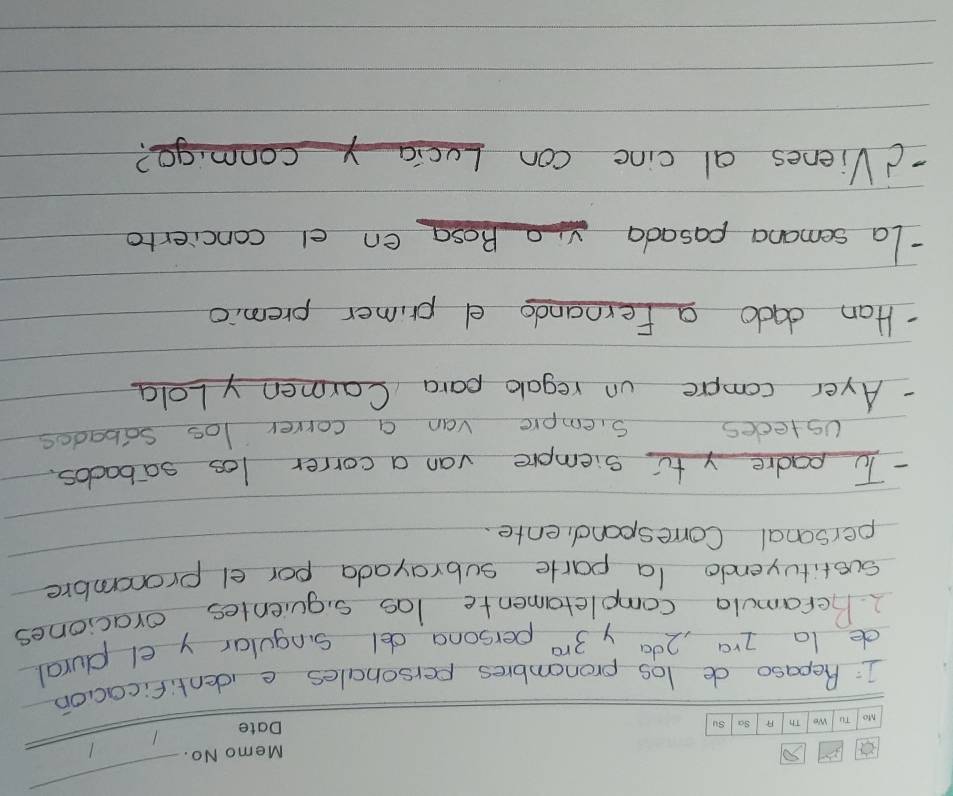 Memo No.
Mo Tu We Th F Sa Su
Date / /
1= Repaso de los pronombres personales e identificación
de la 1ra, 2da y 3ra persona del singular y el plural
2.- Refomula completamente las siguientes oraciones
sustituyendo la parte subrayada por el pronombre
personal Correspondiente.
- Tu padre y tú siempre van a correr los sábados.
Ustedes siempre van a correr los sábados
- Ayer compre un regalo para Carmen y Lola
- Han dado a Fernando el primer premio
- La semana pasada vi a Rosa en el concierto
- ¿Vienes al cine con Lucía y conmigo?